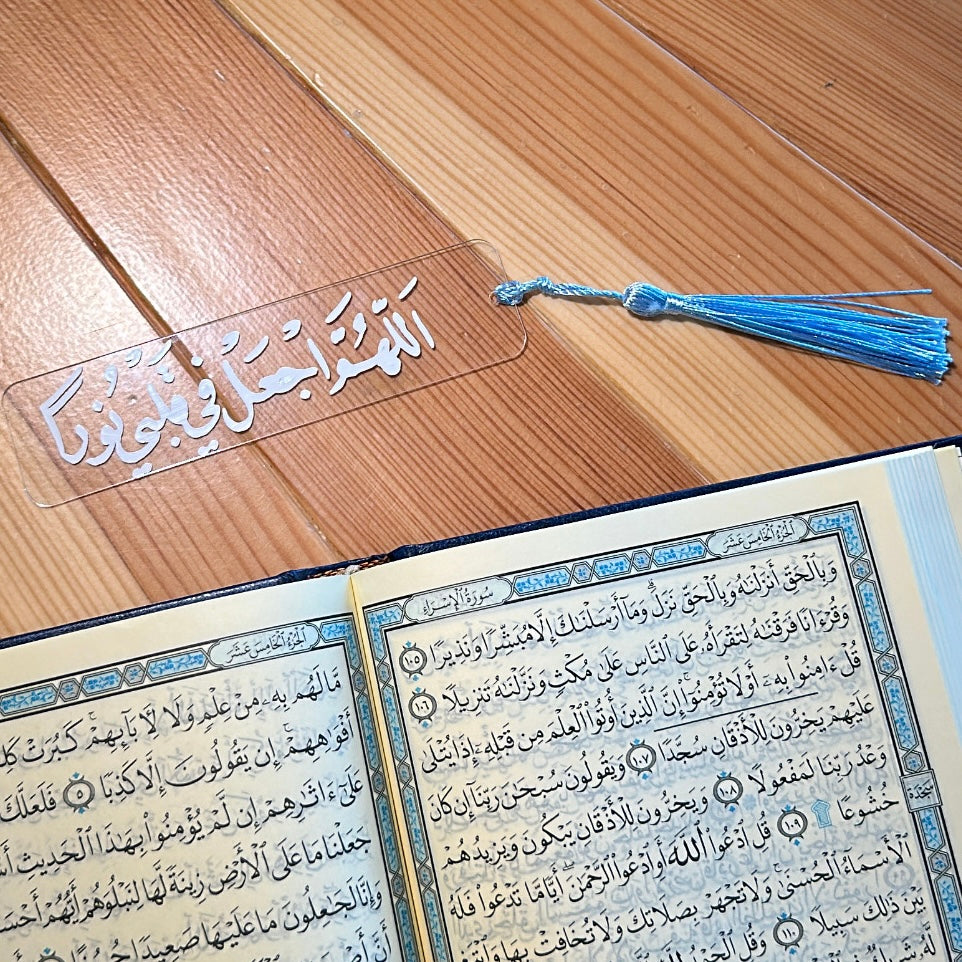 اللَّهُمَّ اجْعَلْ فِي قَلْبِي نُورًا
ٱلْجُزْءُ ٱلْخَامِسَ عَشَرَ
سُورَةُ ٱلْإِسْرَاءِ
وَبِٱلْحَقِّ أَنزَلْنَٰهُ وَبِٱلْحَقِّ نَزَلَ ۗ وَمَآ أَرْسَلْنَٰكَ إِلَّا مُبَشِّرًا وَنَذِيرًا ١٠٥
وَقُرْءَانًا فَرَقْنَٰهُ لِتَقْرَأَهُۥ عَلَى ٱلنَّاسِ عَلَىٰ مُكْثٍ وَنَزَّلْنَٰهُ تَنزِيلًا ١٠٦
قُلْ ءَامِنُوا۟ بِهِۦٓ أَوْ لَا تُؤْمِنُوٓا۟ ۚ إِنَّ ٱلَّذِينَ أُوتُوا۟ ٱلْعِلْمَ مِن قَبْلِهِۦٓ إِذَا يُتْلَىٰ
عَلَيْهِمْ يَخِرُّونَ لِلْأَذْقَانِ سُجَّدًا ١٠٧ وَيَقُولُونَ سُبْحَٰنَ رَبِّنَآ إِن كَانَ
وَعْدُ رَبِّنَا لَمَفْعُولًا ١٠٨ وَيَخِرُّونَ لِلْأَذْقَانِ يَبْكُونَ وَيَزِيدُهُمْ
خُشُوعًا ۩ ١٠٩ قُلِ ٱدْعُوا۟ ٱللَّهَ أَوِ ٱدْعُوا۟ ٱلرَّحْمَٰنَ ۖ أَيًّا مَّا تَدْعُوا۟ فَلَهُ
ٱلْأَسْمَآءُ ٱلْحُسْنَىٰ ۚ وَلَا تَجْهَرْ بِصَلَاتِكَ وَلَا تُخَافِتْ بِهَا وَٱبْتَغِ
بَيْنَ ذَٰلِكَ سَبِيلًا ١١٠ وَقُلِ ٱلْحَمْدُ
لَّهُۥ شَرِيكٌ
سَجْدَة
ٱلْجُزْءُ ٱلْخَامِسَ عَشَرَ
مَّا لَهُم بِهِۦ مِنْ عِلْمٍ وَلَا لِءَابَآئِهِمْ ۚ كَبُرَتْ
أَفْوَٰهِهِمْ ۚ إِن يَقُولُونَ إِلَّا كَذِبًا ٥ فَلَعَلَّكَ
عَلَىٰٓ ءَاثَٰرِهِمْ إِن لَّمْ يُؤْمِنُوا۟ بِهَٰذَا ٱلْحَدِيثِ
جَعَلْنَا مَا عَلَى ٱلْأَرْضِ زِينَةً لَّهَا لِنَبْلُوَهُمْ أَيُّهُمْ
وَإِنَّا لَجَٰعِلُونَ مَا عَلَيْهَا صَعِيدًا